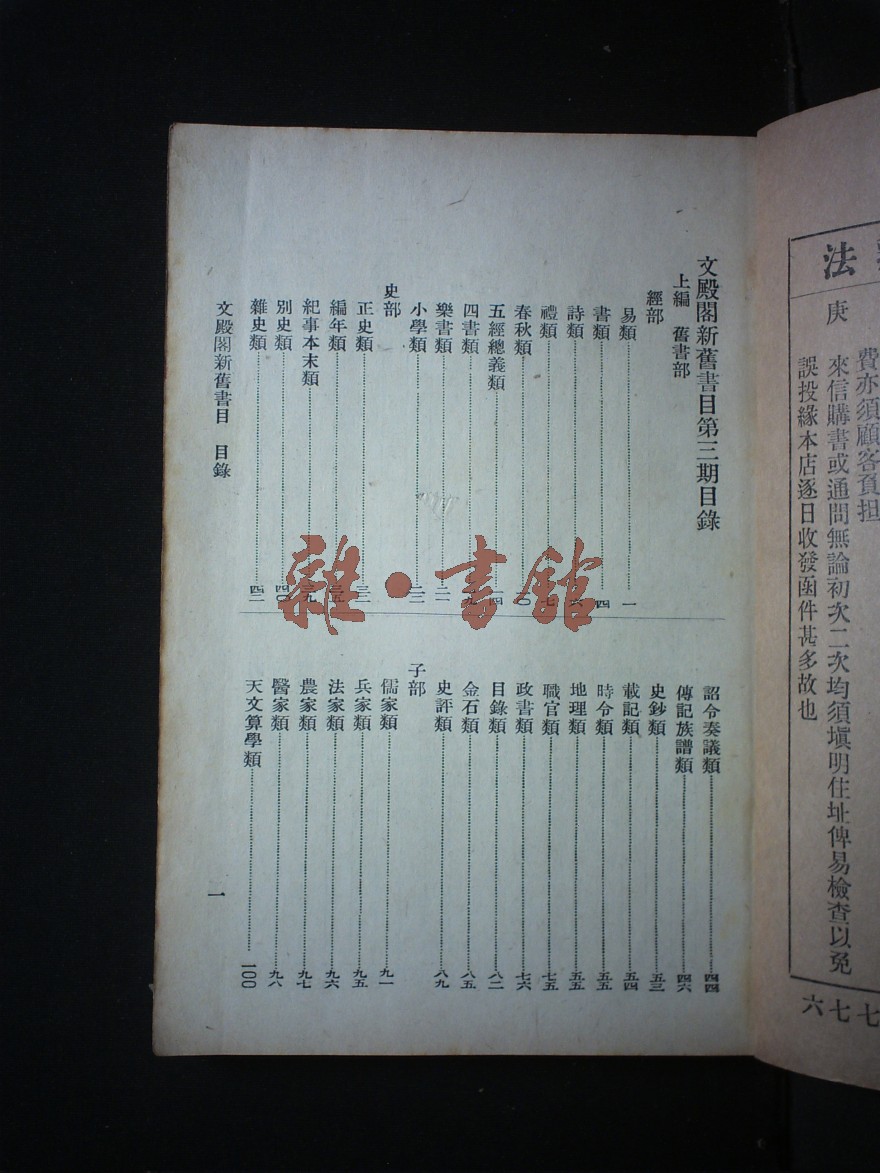 法
庚
費亦須顧客負担
來信購書或通問無論初次二次均須塡明住址俾易檢查以免
誤投緣本店逐日收發函件甚多故也
七七六
文殿閣新舊書目第三期目錄
上編 舊書部
經部
易類 一
書類 四
詩類 六
禮類 七
春秋類
五經總義類
四書類
樂書類
小學類
史部
正史類
編年類
紀事本末類
別史類 四〇
雜史類 四二
詔令奏議類 四四
傳記族譜類 四六
史鈔類 五三
載記類 五四
時令類 五五
地理類 五五
職官類 七五
政書類 七六
目錄類 八二
金石類 八五
史評類 八九
子部
儒家類 九一
兵家類 九五
法家類 九六
農家類 九七
醫家類 九八
天文算學類 一〇〇
文殿閣新舊書目 目錄
一
雜·書館